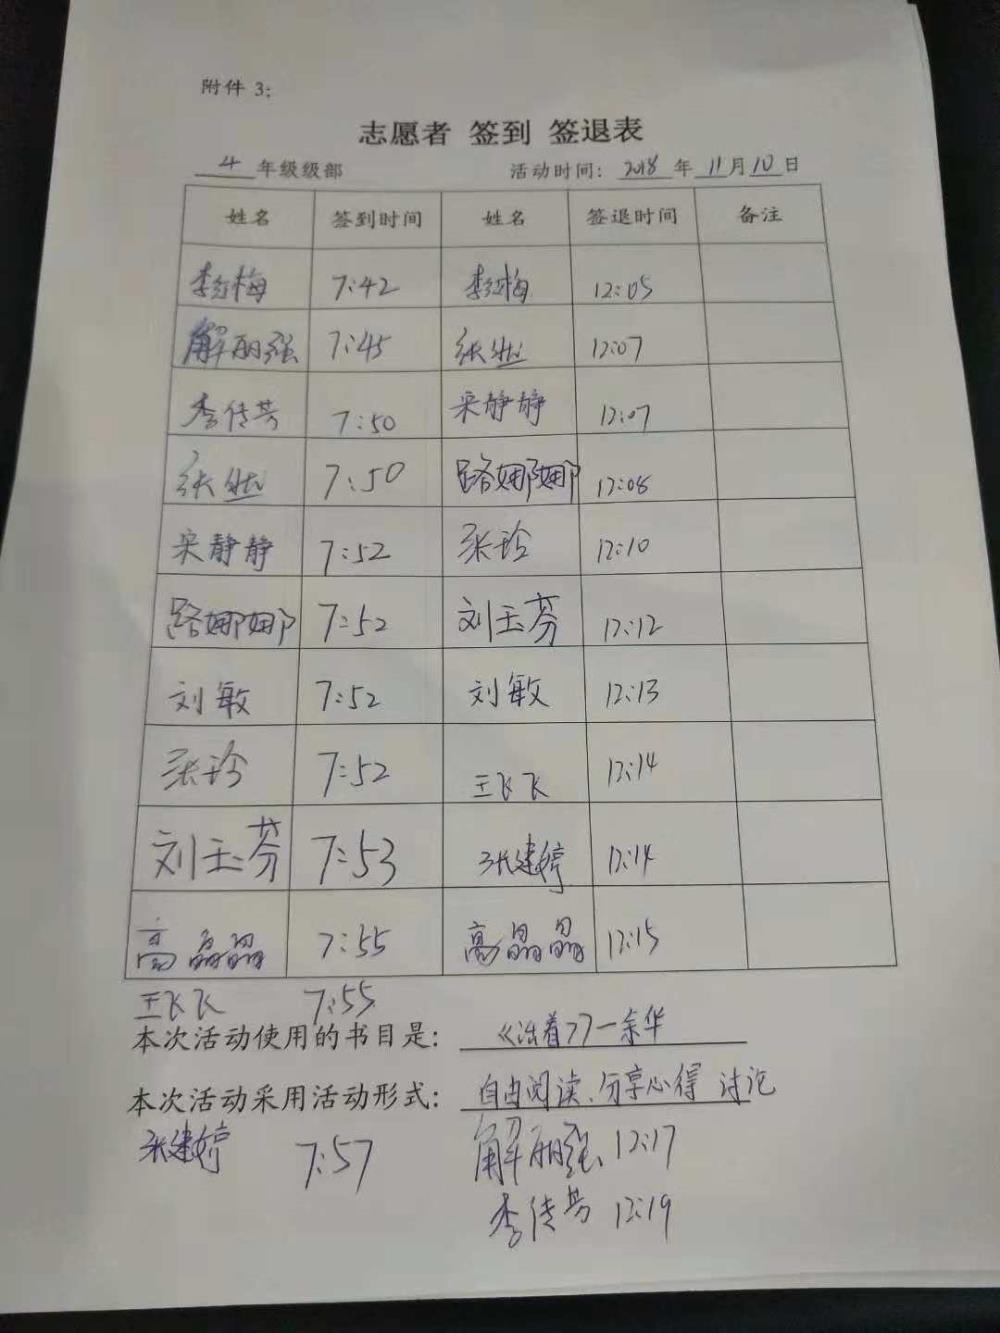 附件 3:
志愿者 签到 签退表
4 年级级部 活动时间: 2018 年 11 月 10 日
姓名 签到时间 姓名 签退时间 备注
李红梅 7:42 李红梅 12:05
解丽强 7:45 张 12:07
李传芳 7:50 宋静静 12:07
张 7:50 路娜娜 12:08
宋静静 7:52 张玲 12:10
路娜娜 7:52 刘玉芬 12:12
刘敏 7:52 刘敏 12:13
张玲 7:52 王飞飞 12:14
刘玉芬 7:53 张建婷 12:14
高晶晶 7:55 高晶晶 12:15
王飞飞 7:55
本次活动使用的书目是: 《活着》—余华
本次活动采用活动形式: 自由阅读、分享心得 讨论
张建婷 7:57 解丽强 12:17
李传芳 12:19